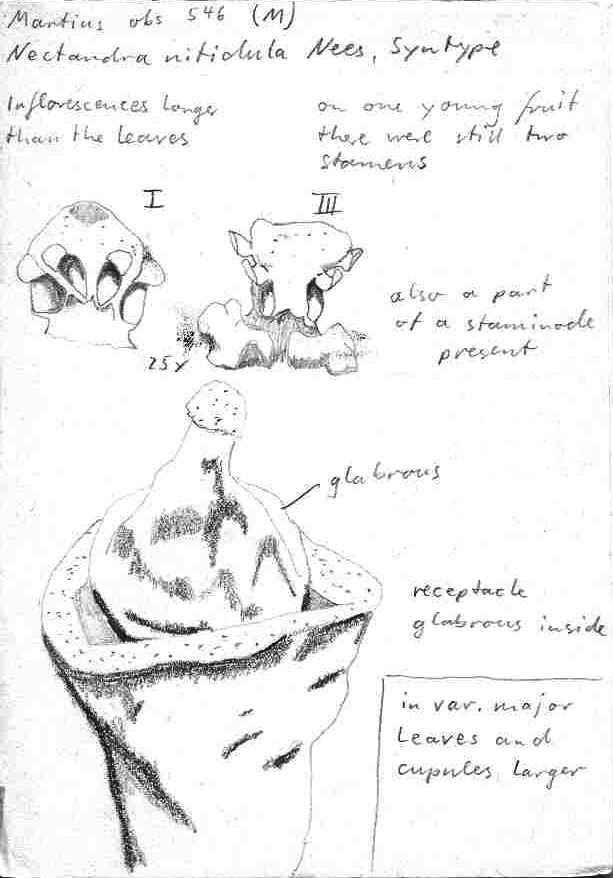 Martius obs 546 (M)
Nectandra nitidula Nees, Syntype
Inflorescences longer
than the leaves
on one young fruit
there were still two
stamens
I
III
also a part
of a staminode
present
25x
glabrous
receptacle
glabrous inside
in var. major
leaves and
cupules larger